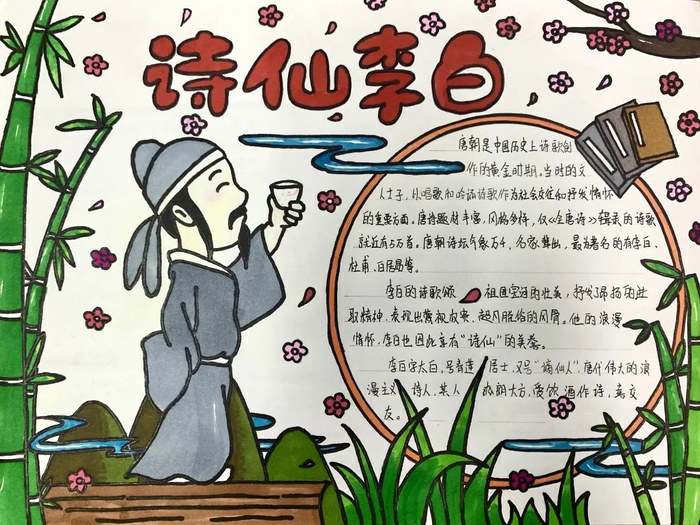 诗仙李白
唐朝是中国历史上诗歌创
作的黄金时期。当时的文
人士子,以唱歌和吟诵诗歌作为社会交往和抒发情怀
的重要方面。唐诗题材丰富,风格多样,仅《全唐诗》辑录的诗歌
就近有5万首。唐朝诗坛气象万千,名家辈出,最为著名的有李白、
杜甫、白居易等。
李白的诗歌颂 祖国山河的壮美,抒发了昂扬的进
取精神,表现出蔑视权贵、超凡脱俗的风骨。他的浪漫
情怀,李白也因此享有“诗仙”的美誉。
李白字太白,号青莲 居士,又号“谪仙人”,唐代伟大的浪
漫主义 诗人,其人 爽朗大方,爱饮酒作诗,喜交
友。